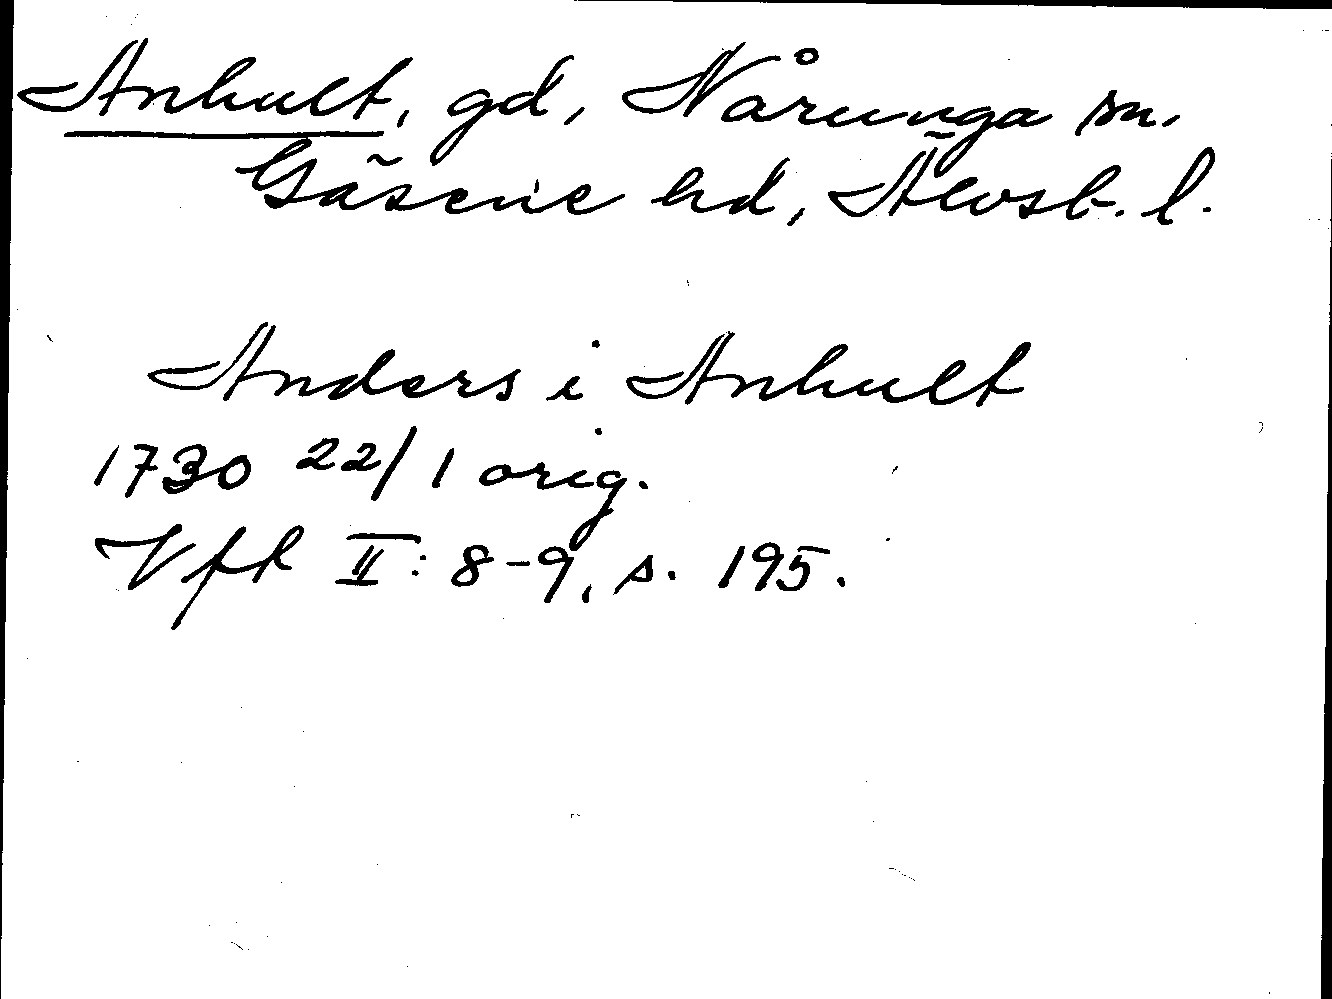 Anhult, gd, Nårunga sn.
Gäsene hd, Älvsb. l.
Anders i Anhult
1730 22/1 orig.
Vfk II: 8-9, s. 195.